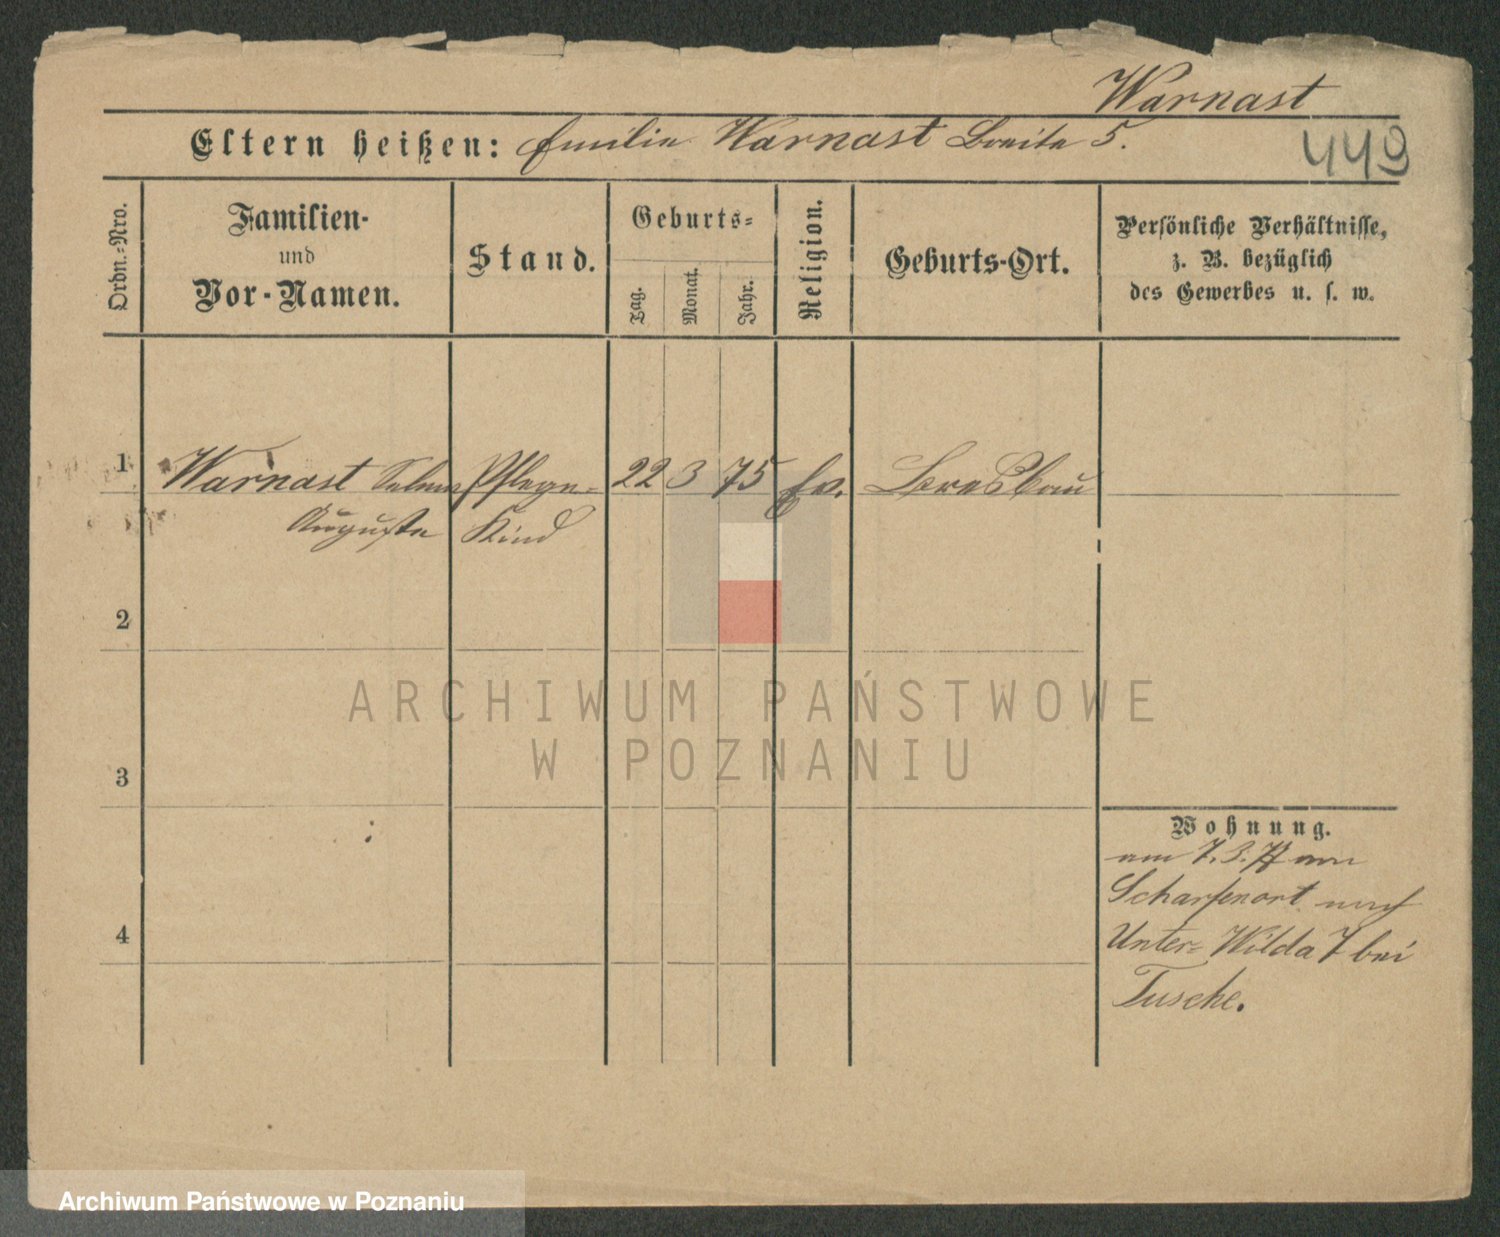 Warnast
Eltern heißen: Emilie Warnast Breite 5.
449
Ordn.-Nro.
Familien-
und
Vor-Namen.
Stand.
Geburts-
Tag.
Monat.
Jahr.
Religion.
Geburts-Ort.
Persönliche Verhältnisse,
z. B. bezüglich
des Gewerbes u. s. w.
1 Warnast Selma Pflege- 22 3 75 Ev.
Auguste Kind
2
3
4
Wohnung.
am 7. 3. 77 von
Scharfenort nach
Unter-Wilda 7 bei
Tusche.
ARCHIWUM PAŃSTWOWE
W POZNANIU
Archiwum Państwowe w Poznaniu